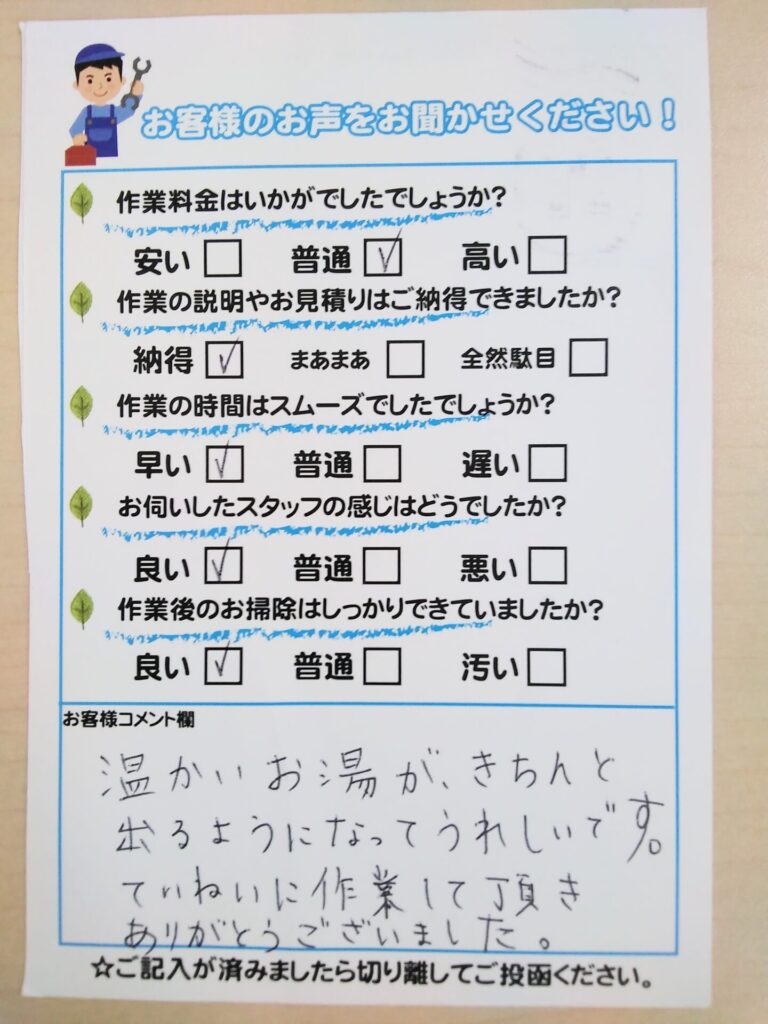 お客様のお声をお聞かせください！
作業料金はいかがでしたでしょうか？
安い □ 普通 ☑ 高い □
作業の説明やお見積りはご納得できましたか？
納得 ☑ まあまあ □ 全然駄目 □
作業の時間はスムーズでしたでしょうか？
早い ☑ 普通 □ 遅い □
お伺いしたスタッフの感じはどうでしたか？
良い ☑ 普通 □ 悪い □
作業後のお掃除はしっかりできていましたか？
良い ☑ 普通 □ 汚い □
お客様コメント欄
温かいお湯が、きちんと
出るようになってうれしいです。
ていねいに作業して頂き
ありがとうございました。
☆ご記入が済みましたら切り離してご投函ください。